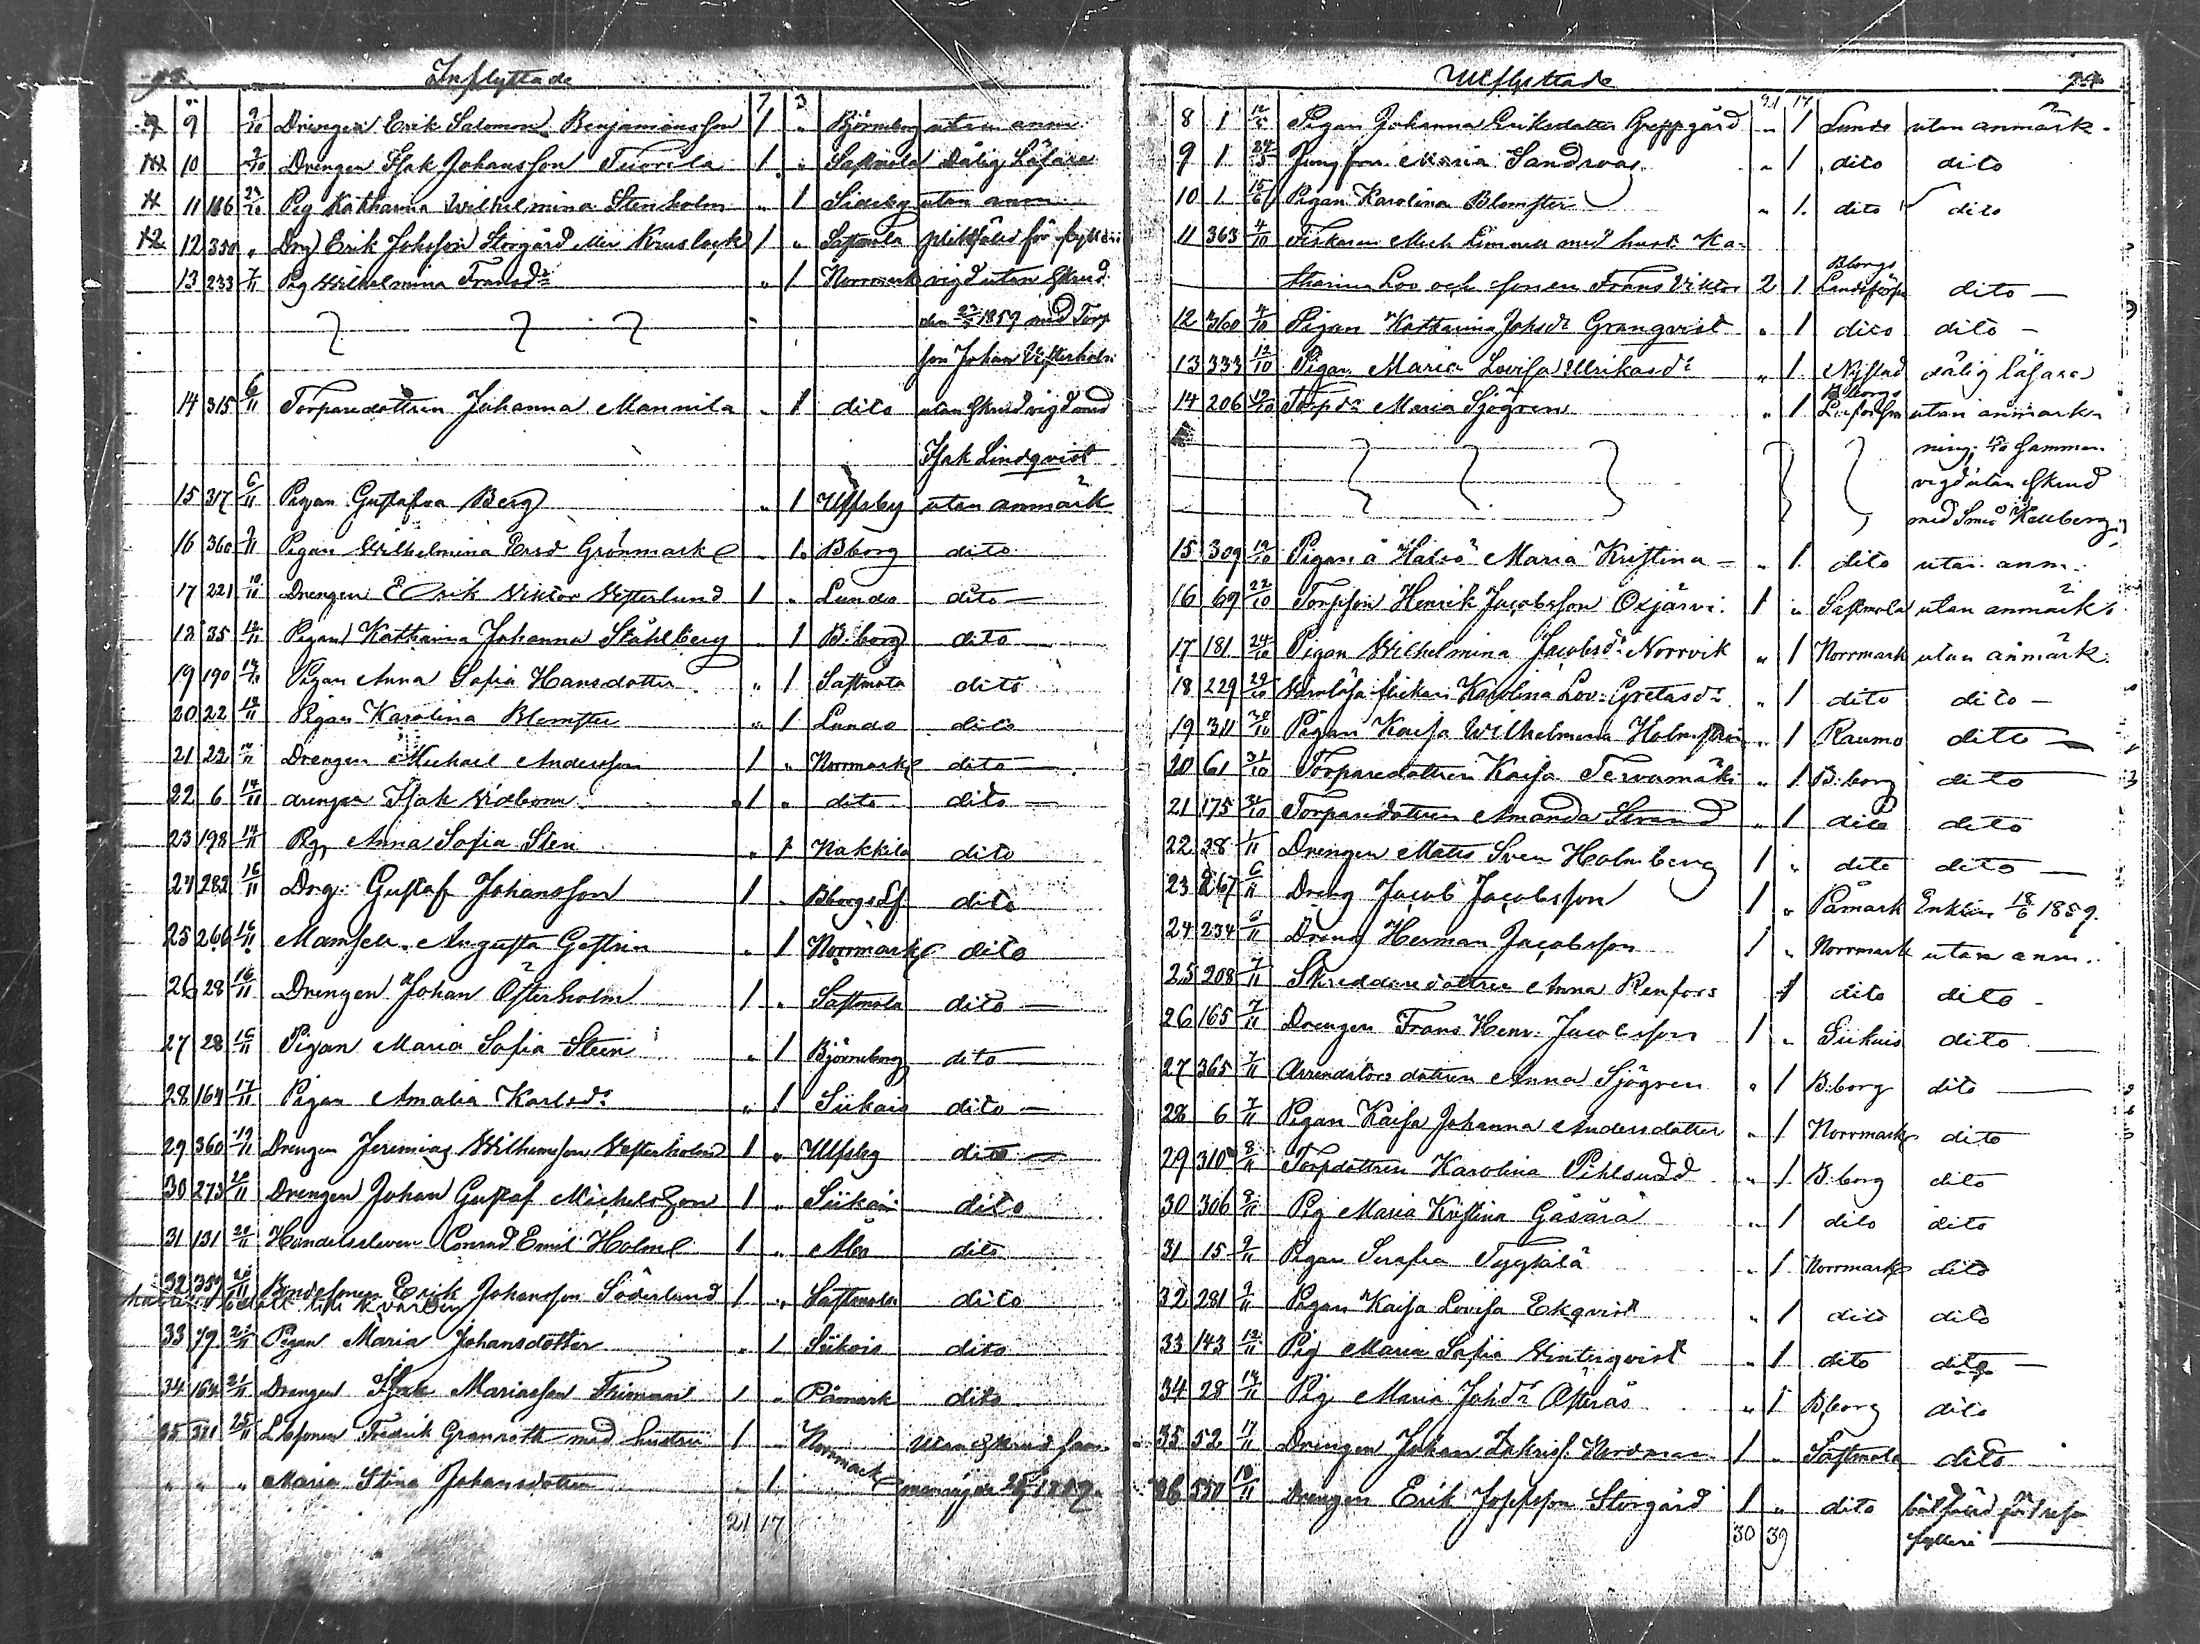 Inflyttade
7 3
9 9 9/10 Drengen Erik Salomon Benjaminsson 1 " Björneborg utan anm
10 10 9/10 Drengen Isak Johansson Tuorila 1 " Sastmola Dålig Läsare
11 11 186 Pig Katharina Wilhelmina Stenholm " 1 Sideby utan anm
12 12 350 " Drg Erik Johsson Storgård 1 " Sastmola pliktfäld för fylleri
13 233 7/11 Pig Wilhelmina Fransdr " 1 Norrmark vigd utan Skrud
den 1859 med Torp
son Johan Westerholm
14 315 6/11 Torparedottren Johanna Mannila " 1 dito utan Skrud vigd med
Isak Lindqvist
15 317 6/11 Pigan Gustafva Berg " 1 Ulfsby utan anmärk
16 360 9/11 Pigan Wilhelmina Ersd Grönmark " 1 Bborg dito
17 221 10/11 Drengen Erik Viktor Vesterlund 1 " Lundo dito
18 35 12/11 Pigan Katharina Johanna Ståhlberg " 1 B:borg dito
19 190 14/11 Pigan Anna Sofia Hansdotter " 1 Sastmola dito
20 22 14/11 Pigan Karolina Blomster " 1 Lundo dito
21 22 Drengen Michael Andersson 1 " Norrmark dito
22 6 14/11 drengen Isak Vidbom 1 " dito dito
23 198 14/11 Pig Anna Sofia Sten " 1 Nakkila dito
24 282 16/11 Drg. Gustaf Johansson 1 " Bborgs Lf dito
25 266 16/11 Mamsell Augusta Gestrin " 1 Norrmark dito
26 28 16/11 Drengen Johan Österholm 1 " Sastmola dito
27 28 16/11 Pigan Maria Sofia Steen " 1 Björneborg dito
28 164 17/11 Pigan Amalia Karlsdr " 1 Siikais dito
29 360 19/11 Drengen Jeremias Wilhemsson Westerholm 1 " Ulfsby dito
30 273 20/11 Drengen Johan Gustaf Michelsson 1 " Siikais dito
31 131 20/11 Handelseleven Conrad Emil Holm 1 " Åbo dito
32 357 20/11 Bondesonen Erik Johansson Söderlund 1 " Sastmola dito
till Kvarblij
33 79 21/11 Pigan Maria Johansdotter " 1 Siikais dito
34 164 21/11 Drengen Isak Mariasson Friman 1 " Påmark dito
35 311 25/11 Lbsonen Fredrik Granroth med hustru 1 " Norrmark utan Skrud sam
" " " Maria Stina Johansdotter " 1
21 17
Utflyttade
21 17
8 1 12/5 Pigan Johanna Eriksdotter Greppgård " 1 Lundo utan anmärk.
9 1 24/5 Jungfrun Maria Sandroos " 1 dito dito
10 1 15/6 Pigan Karolina Blomster " 1 dito dito
11 363 4/10 Fiskaren Mich Limnell med hust Ka-
tharina Lov och sonen Frans Viktor 2 1 Bborgs Landsförs dito
12 360 4/10 Pigan Katharina Johsdr Granqvist " 1 dito dito
13 333 12/10 Pigan Maria Lovisa Ulrikasdr " 1 Nystad dålig läsare
14 206 Torpdr Maria Sjögren " 1 Bborgs utan anmärk-
ning samman
vigd utan Skrud
med Smed Kellberg
15 309 19/10 Pigan å Halsö Maria Kristina " 1 dito utan anm.
16 69 22/10 Torpson Henrik Jacobsson Oxjärvi 1 " Sastmola utan anmärk.
17 181 24/10 Pigan Wilhelmina Jacobsdr Norrvik " 1 Norrmark utan anmärk.
18 229 29/10 Wärnlösa flickan Karolina Lov: Gretasdr " 1 dito dito
19 311 30/10 Pigan Kajsa Wilhelmina Holmström " 1 Raumo dito
20 61 31/10 Torparedottren Kajsa Tervamäki " 1 B:borg dito
21 175 31/10 Torparedottren Amanda Strand " 1 dito dito
22 28 1/11 Drengen Matts Sven Holmberg 1 " dito dito
23 267 6/11 Dreng Jacob Jacobsson 1 " Påmark Enkling 18/6 1859.
24 234 6/11 Dreng Herman Jacobsson 1 " Norrmark utan anm.
25 208 7/11 Skreddaredottren Anna Renfors 1 dito dito
26 165 7/11 Drengen Frans Henr. Jacobsson 1 " Siikais dito
27 365 7/11 Arrendators dottren Anna Sjögren " 1 B:borg dito
28 6 7/11 Pigan Kaisa Johanna Andersdotter " 1 Norrmark dito
29 310 8/11 Torpdottren Karolina Pihlsudd " 1 B:borg dito
30 306 8/11 Pig Maria Kristina Gåsärä " 1 dito dito
31 15 9/11 Pigan Serafia Tyykilä " 1 Norrmark dito
32 281 9/11 Pigan Kaisa Lovisa Ekqvist " 1 dito dito
33 143 12/11 Pig Maria Sofia Vinterqvist " 1 dito dito
34 28 14/11 Pig Maria Johdr Österås " 1 B:borg dito
35 52 17/11 Drengen Johan Zakriss. Nordman 1 " Sastmola dito
36 550 18/11 Drengen Erik Josepsson Storgård 1 " dito
30 39 fylleri